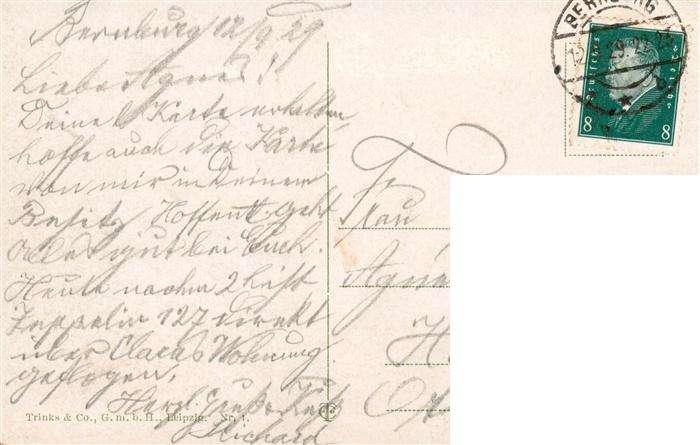 Bernburg 12/9 29
Liebe Agnes!
Deine Karte erhalten,
hoffe auch die Karte
von mir in Deinem
Besitz. Hoffentl. geht
alles gut bei Euch.
Heute nachm 2
Zeppelin 127 direkt
über Claras Wohnung
geflogen.
Herzl. Gruß & Kuß
Richard
Trinks & Co., G. m. b. H., Leipzig. Nr. 1.
BERNBURG
DEUTSCHES REICH
8 8
Frau
Agnes